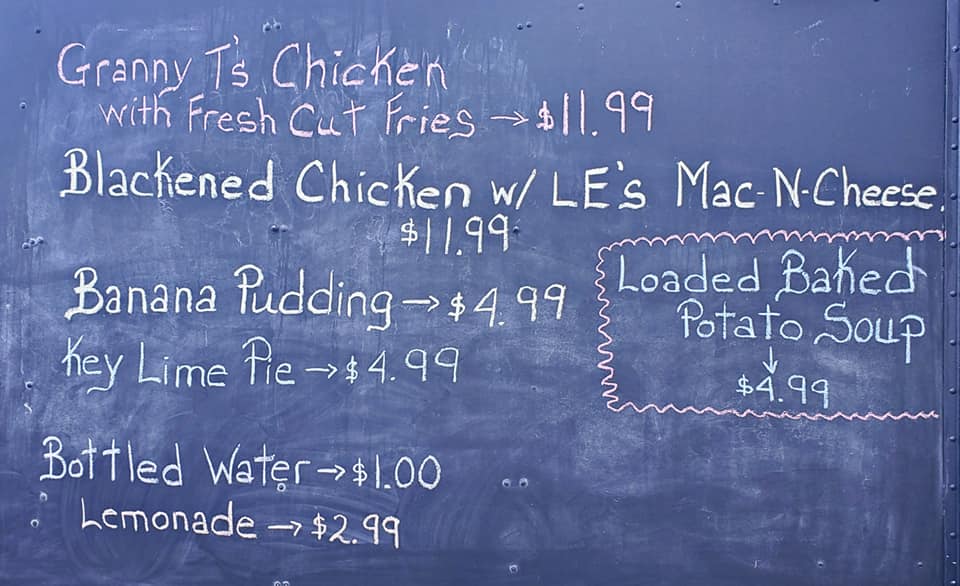 Granny T's Chicken
with Fresh Cut Fries → $11.99
Blackened Chicken w/ LE's Mac-N-Cheese
$11.99
Banana Pudding → $4.99
Key Lime Pie → $4.99
Loaded Baked
Potato Soup
↓
$4.99
Bottled Water → $1.00
Lemonade → $2.99